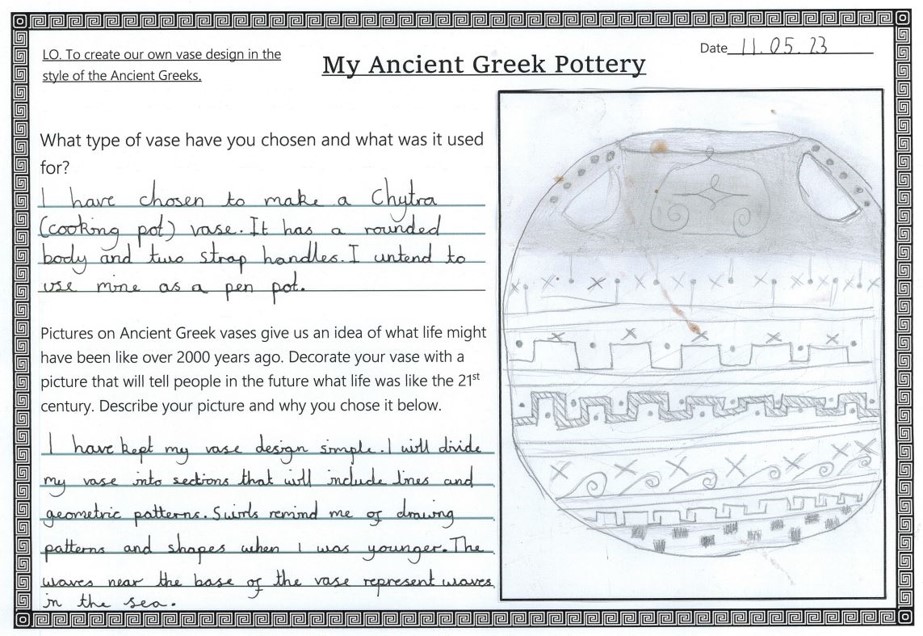 LO. To create our own vase design in the
style of the Ancient Greeks.
My Ancient Greek Pottery
Date 11.05.23
What type of vase have you chosen and what was it used
for?
I have chosen to make a Chytra
(cooking pot) vase. It has a rounded
body and two strap handles. I untend to
use mine as a pen pot.
Pictures on Ancient Greek vases give us an idea of what life might
have been like over 2000 years ago. Decorate your vase with a
picture that will tell people in the future what life was like the 21st
century. Describe your picture and why you chose it below.
I have kept my vase design simple. I will divide
my vase into sections that will include lines and
geometric patterns. Swirls remind me of drawing
patterns and shapes when I was younger. The
waves near the base of the vase represent waves
in the sea.